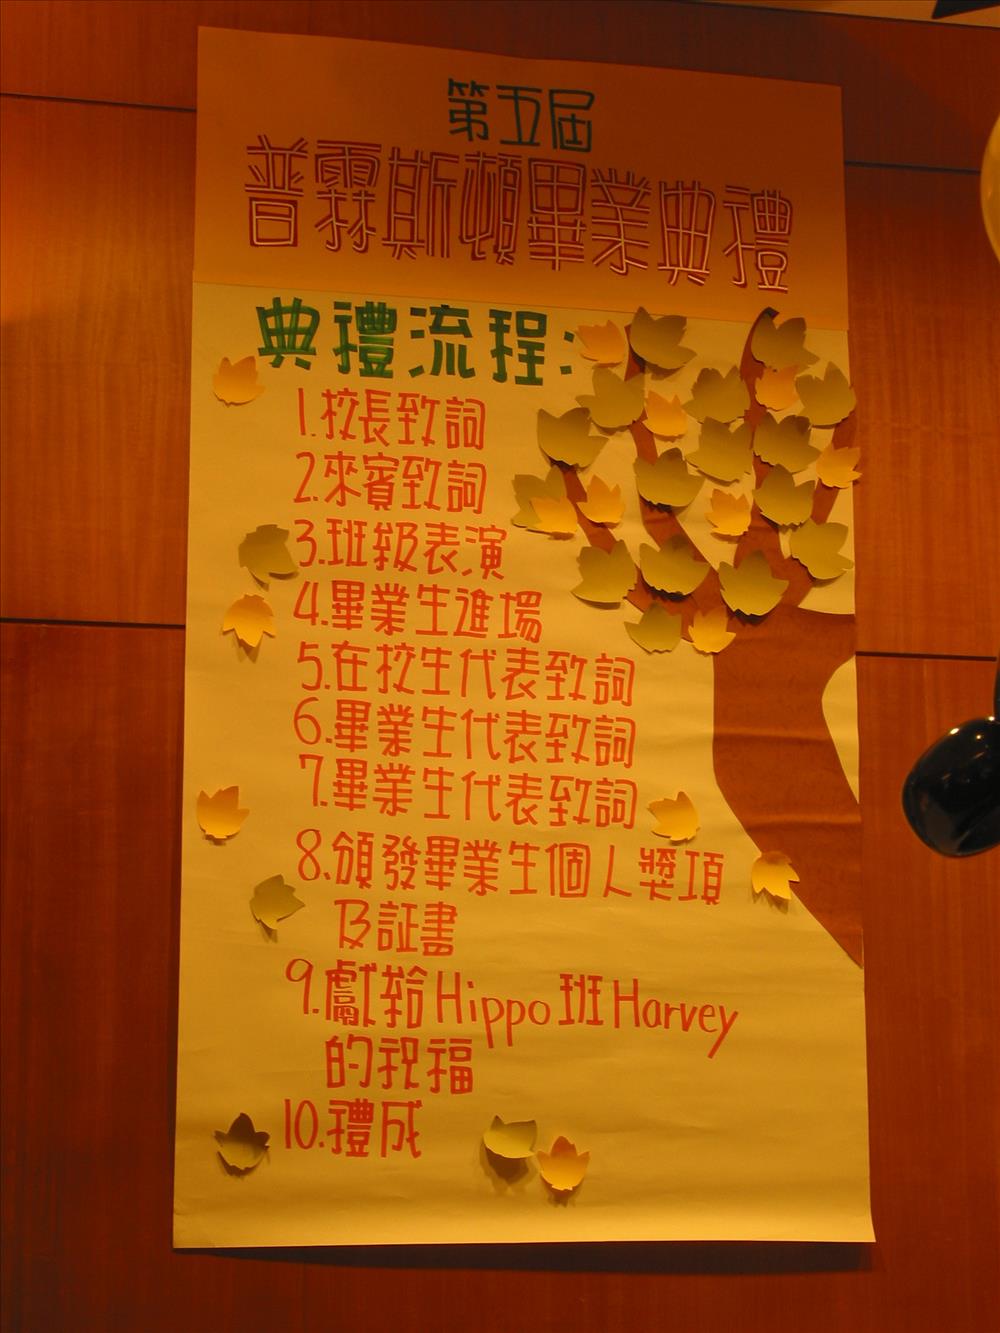 第五屆
普霖斯頓畢業典禮
典禮流程:
1.校長致詞
2.來賓致詞
3.班級表演
4.畢業生進場
5.在校生代表致詞
6.畢業生代表致詞
7.畢業生代表致詞
8.頒發畢業生個人獎項
及証書
9.獻給Hippo班Harvey
的祝福
10.禮成